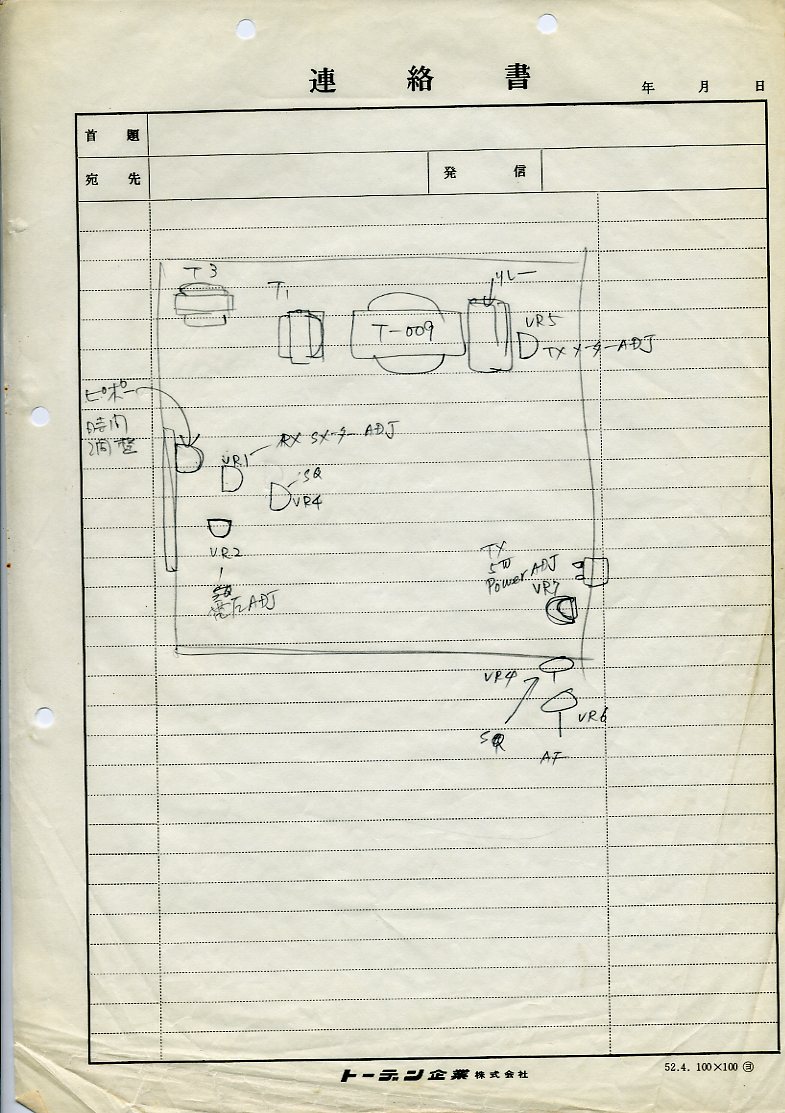 連絡書
年 月 日
首題
宛先
発信
T3
T1
T-009
リレー
VR5
TXメーターADJ
ピポー
時間
調整
RX SメーターADJ
VR1
SQ
VR4
VR2
電圧ADJ
TX
5W
Power ADJ
VR7
VR4
VR6
SQ
AF
トーデン企業株式会社
52.4. 100×100 ヨ